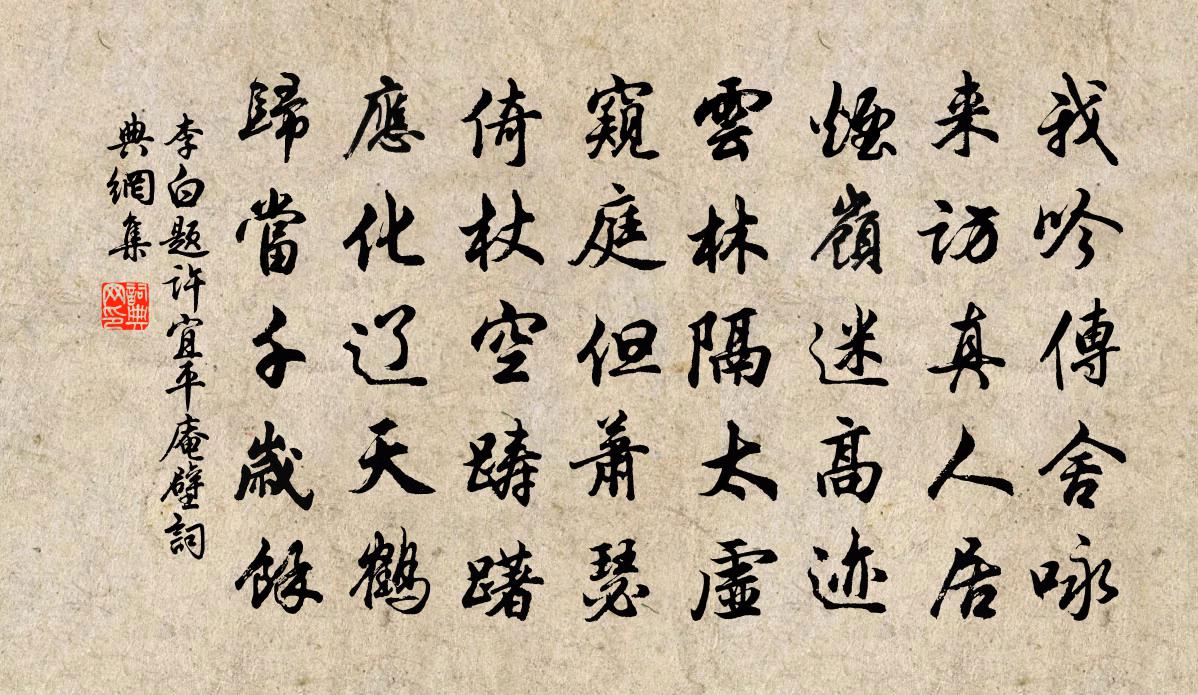 我吟傳舍咏
来訪真人居
煙嶺迷高迹
雲林隔太虛
窺庭但蕭瑟
倚杖空躊躇
應化辽天鶴
歸當千歲餘
李白题许宜平庵壁詞
典網集
詞典
网印